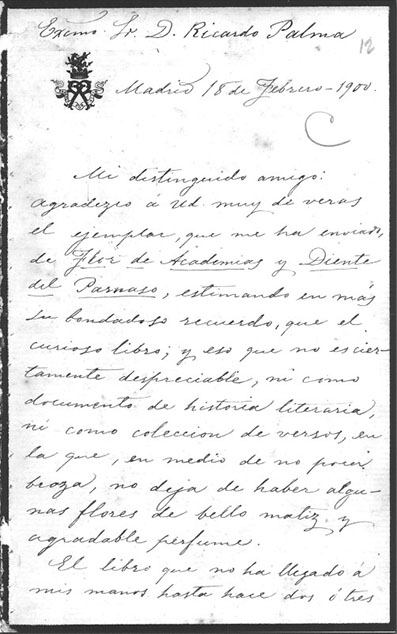 Excmo. Sr. D. Ricardo Palma
12
Madrid 18 de Febrero - 1900.
C
Mi distinguido amigo:
agradezco á Ud. muy de veras
el ejemplar, que me ha enviado,
de Flor de Academias y Diente
del Parnaso, estimando en más
su bondadoso recuerdo, que el
curioso libro; y eso que no es cier-
tamente despreciable, ni como
documento de historia literaria,
ni como coleccion de versos, en
la que, en medio de no poca
broza, no deja de haber algu-
nas flores de bello matiz y
agradable perfume.
El libro que no ha llegado á
mis manos hasta hace dos ó tres